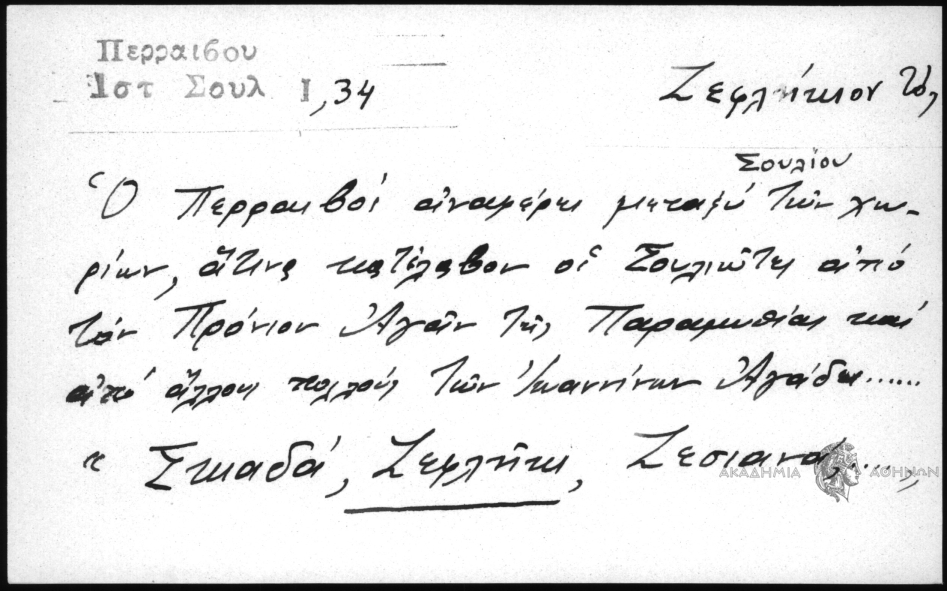 Περραιβου
Ιστ Σουλ Ι,34
Ζεφλήκιον τό,
Σουλίου
Ὁ Περραιβός ἀναφέρει μεταξύ τῶν χω-
ρίων, ἅτινα κατέλαβον οἱ Σουλιῶται ἀπό
τόν Πρόνιον Ἀγᾶν τῆς Παραμυθίας καί
ἀπό ἄλλους πολλούς τῶν Ἰωαννίνων Ἀγάδες......
" Σκιαδά, Ζεφλήκι, Ζεσιανα
ΑΚΑΔΗΜΙΑ ΑΘΗΝΩΝ